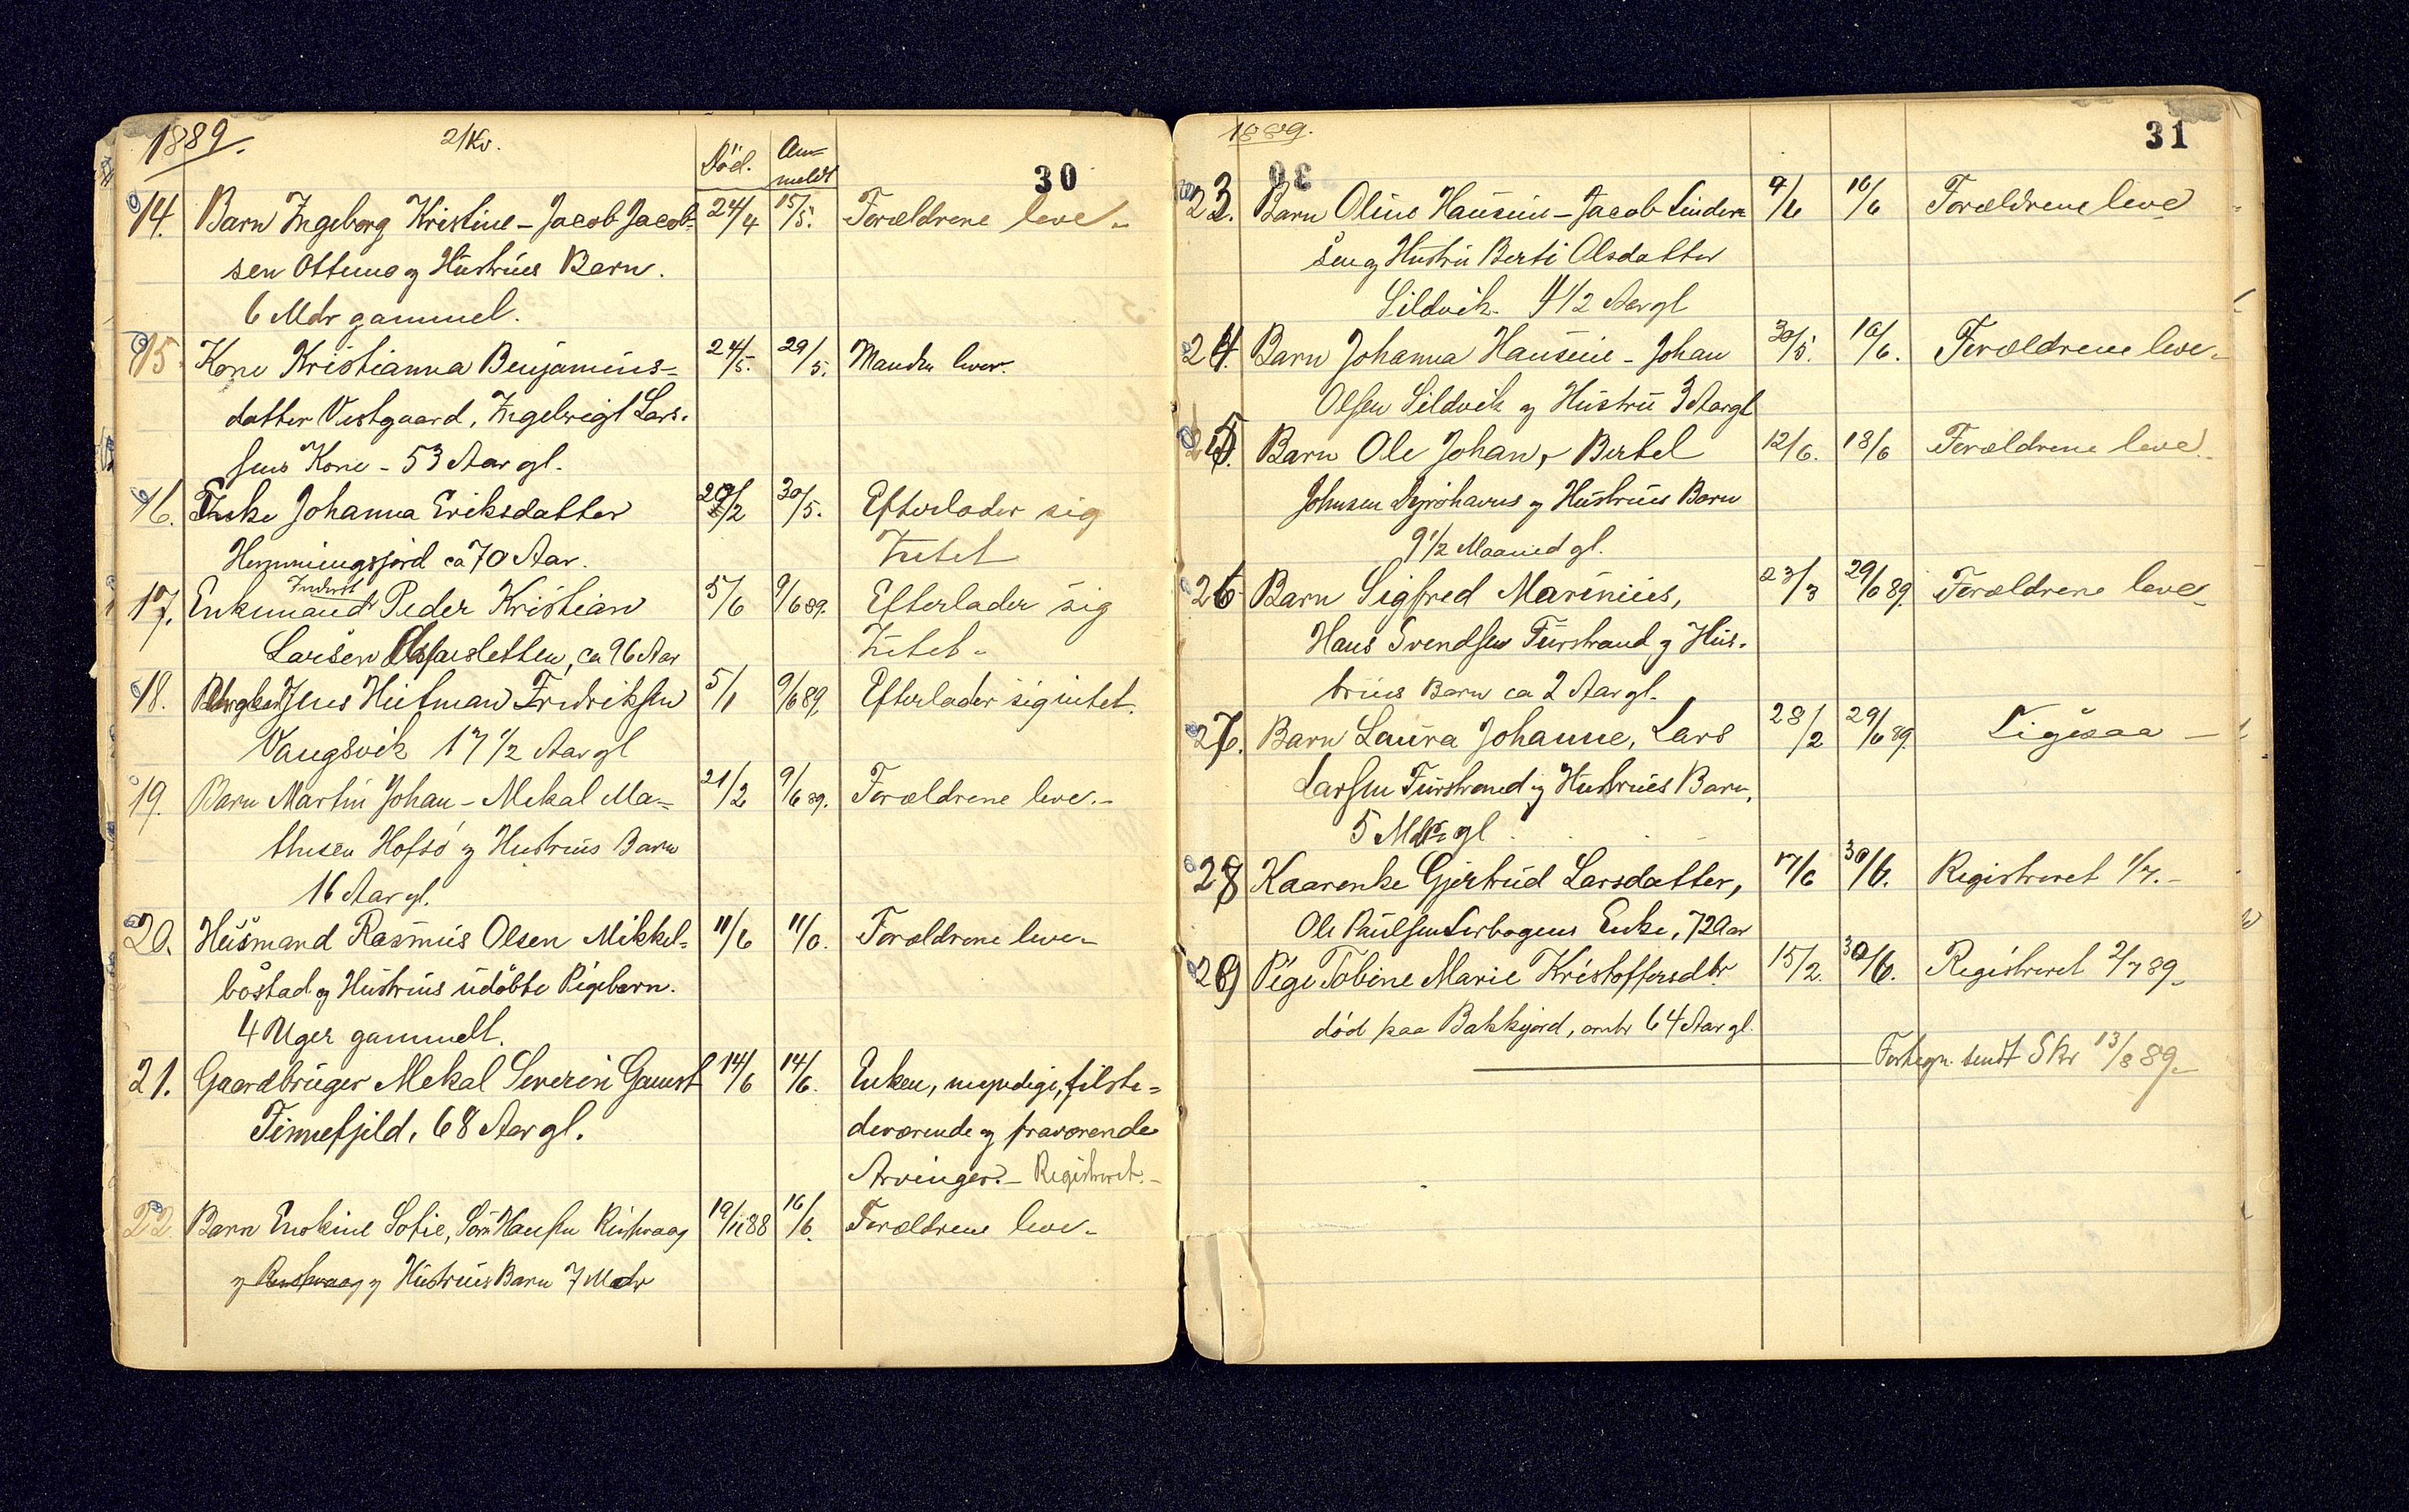 1889.
2/Kv.
Död.
An=
meldt
30
14. Barn Ingeborg Kristine - Jacob Jacob- 24/4 15/5. Forældrene leve.
sen Ottung og Hustrües Barn.
6 Mdr gammel.
15. Kone Kristianna Benjamins- 24/5. 29/5. Manden lever.
datter Vestgaard, Ingebrigt Lars-
sens Kone - 53 Aar gl.
16. Enke Johanna Eriksdatter 30/5. Efterlader sig
Hemmingsfjord ca 70 Aar. Intet
Inderst
17. Enkemand Peder Kristian 5/6 9/6 89. Efterlader sig
Larsen, ca 96 Aar Intet.
18. Jens Hitman Fredriksen 5/1 9/6 89. Efterlader sig intet.
Vangsvik 17 1/2 Aar gl
19. Barn Martin Johan - Mekal Ma= 21/2 9/6 89. Forældrene leve.-
thisen Hofsö og Hustrües Barn
16 Aar gl.
20. Hüsmand Rasmüs Olsen Mikkel= 11/6 11/6. Forældrene leve.
bostad og Hüstrües üdöbte Pigebarn.
4 Uger gammelt.
21. Gaardbrüger Mekal Severin Gamst 14/6 14/6. Enken, myndige, tilste=
Finnefjeld, 68 Aar gl. deværende og fraværende
Arvinger.- Registreret.-
22 Barn Enokine Sofie, Sörn Hansen 19/11 88 16/6. Forældrene leve.
og og Hüstrües Barn 7 Mdr
1889.
31
23. Barn Oline Hansine - Jacob Linder= 9/6 16/6 Forældrene leve
sen og Hustrü Berti Olsdatter
Sildvik. 4 1/2 Aar gl
24. Barn Johanna Hansine - Johan 30/5. 16/6. Forældrene leve.
Olsen Sildvik og Hüstrü 3 Aar gl
25. Barn Ole Johan, - Bertel 12/6. 18/6 Forældrene leve.
Johnsen Dyröhavns og Hüstrües Barn
9 1/2 Maaned gl.
26 Barn Sigfred Marinius, 23/3 29/6 89. Forældrene leve
Hans Svendsen Fürstrand og Hüs-
trües Barn ca 2 Aar gl.
27. Barn Laüra Johanne, Lars 28/2 29/6 89. Ligesaa
Larsen Fürstrand og Hüstrües Barn,
5 Mdr gl.
28 Kaarenke Gjertrüd Larsdatter, 17/6 30/6. Registreret 1/7.-
Ole Paülsen Lerbogens Enke, 72 Aar
29 Pige Tobine Marie Kristoffersdtr. 15/2. 30/6. Registreret 2/7 89.
död paa Bakkejord, omtr 64 Aar gl.
Fortegn. sendt Skr 13/8 89.